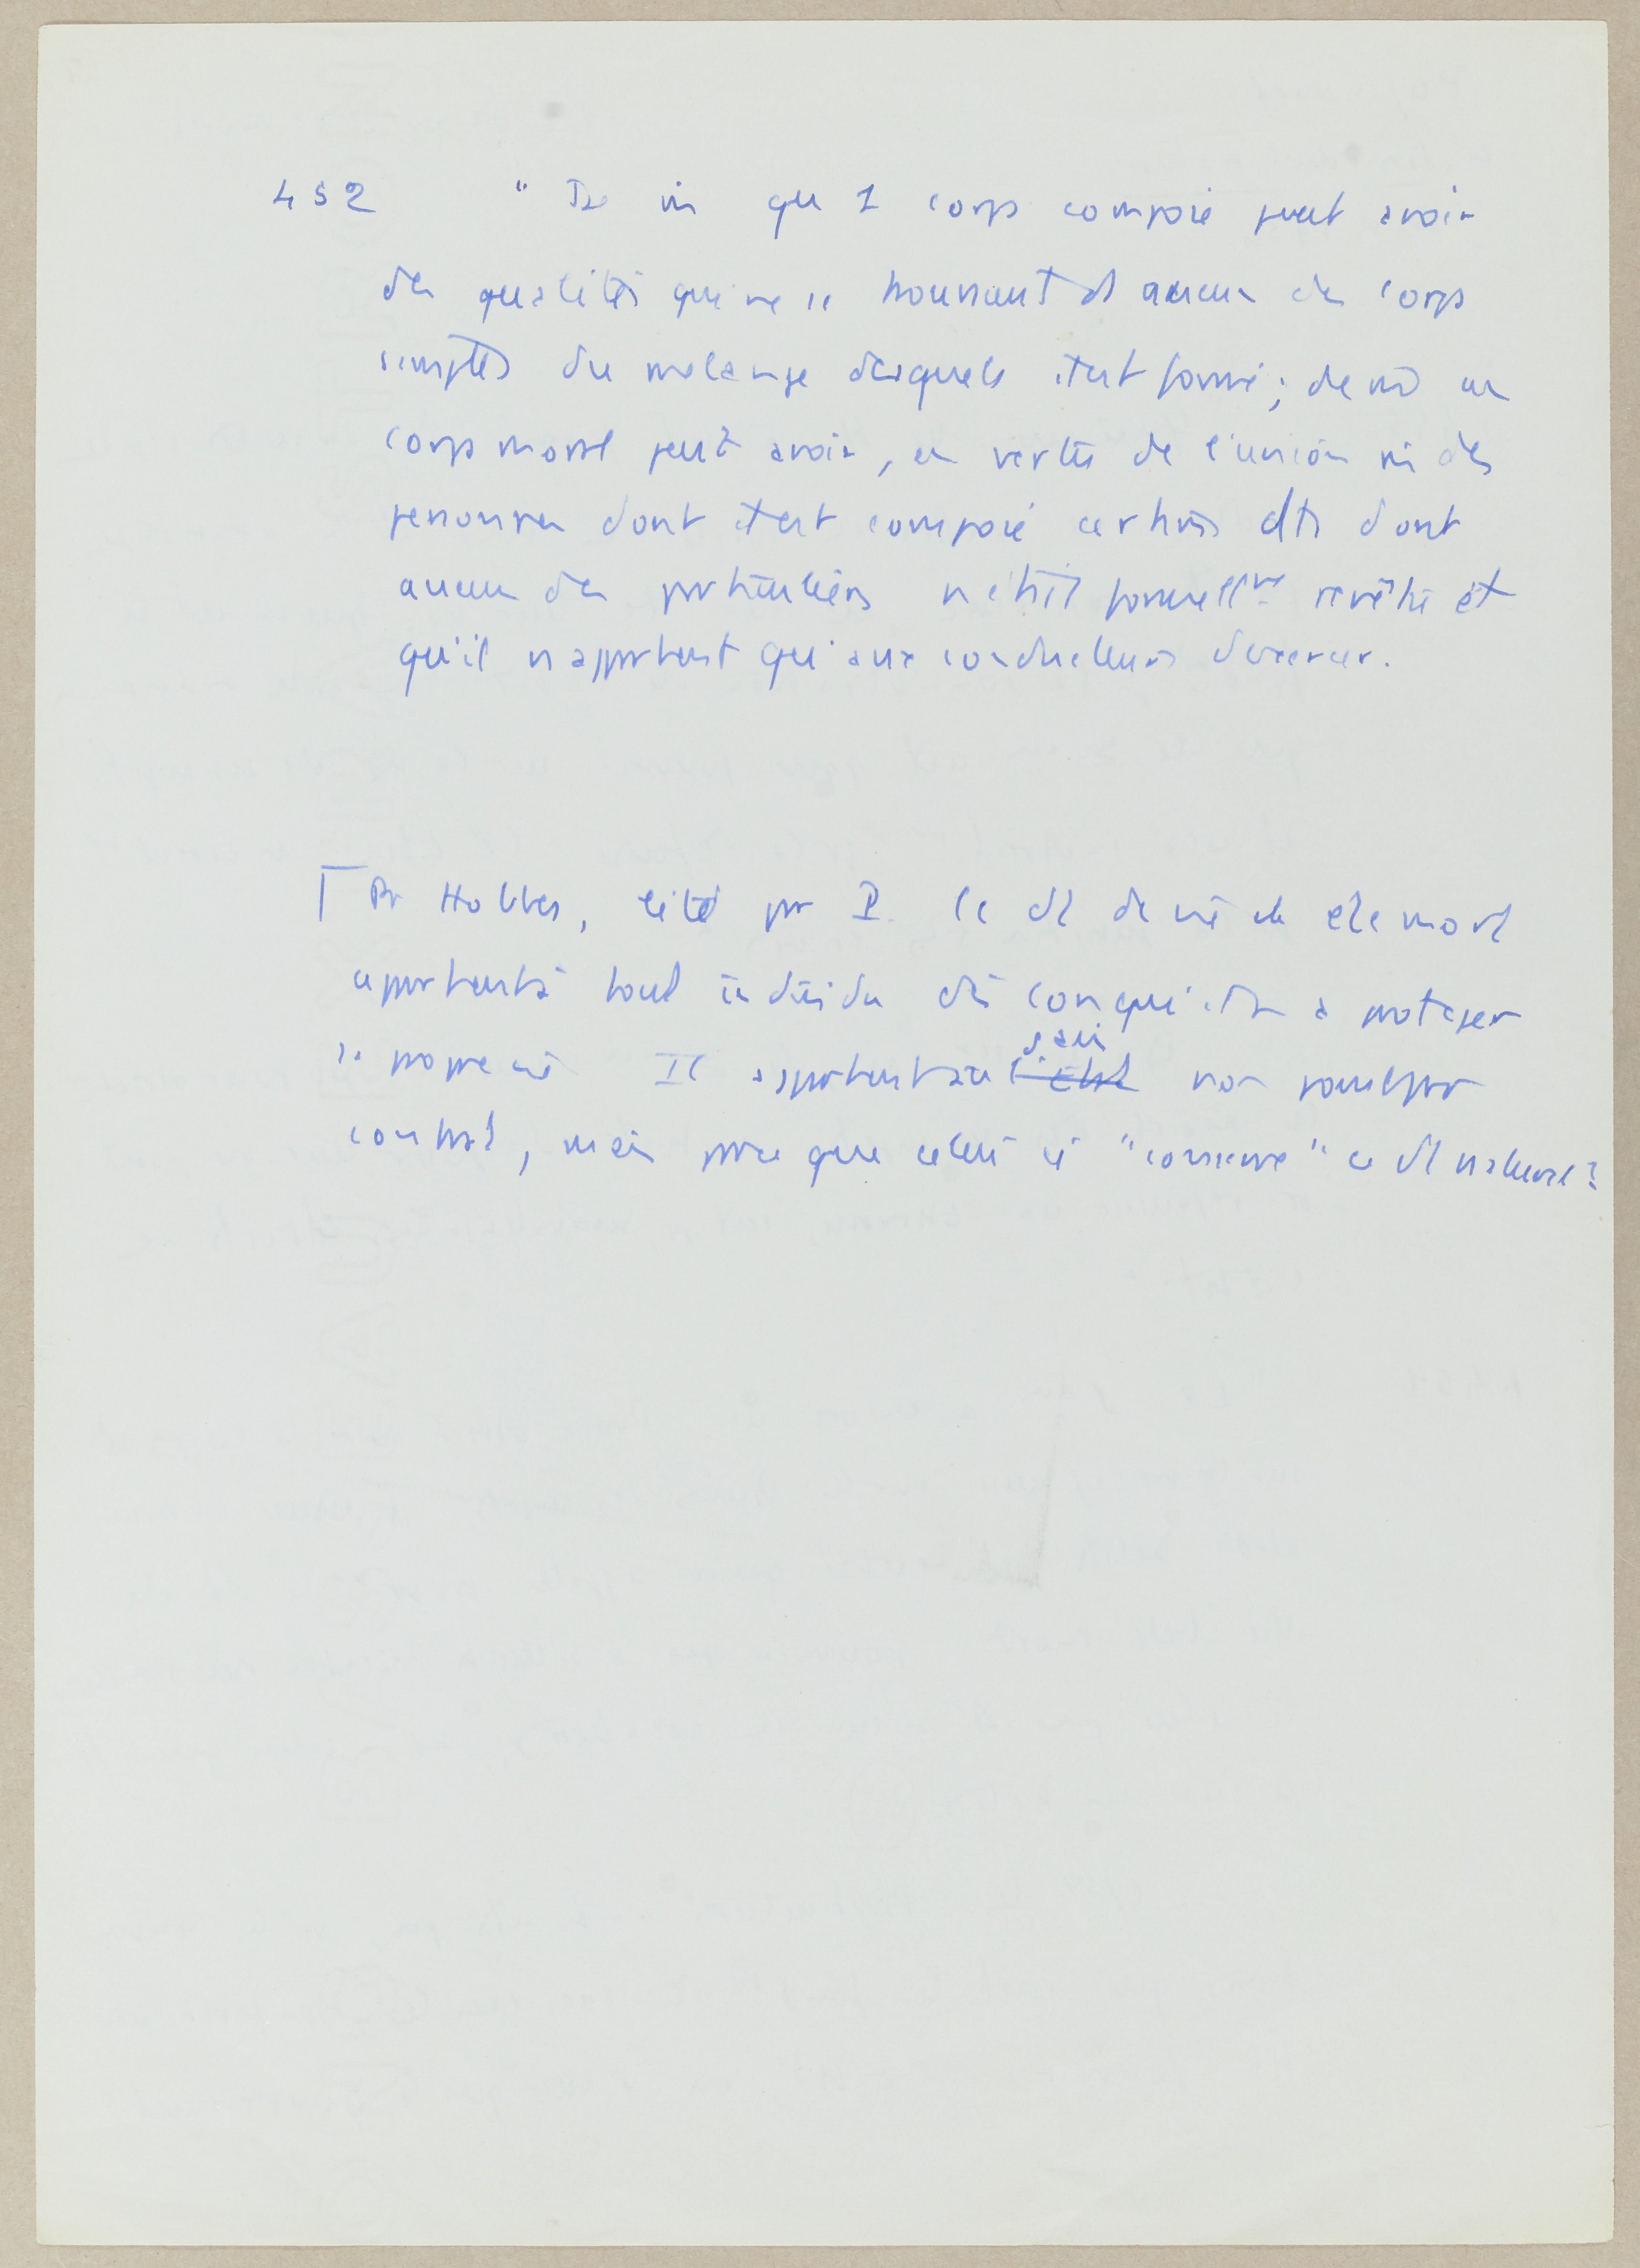 452 " De m̂ que 1 corps composé peut avoir
des qualités qui ne se trouvaient ds aucun des corps
simples du mélange desquels il est formé ; de m̂ un
corps moral peut avoir, en vertu de l'union m̂ des
personnes dont il est composé certains dts dont
aucun des particuliers n'était formellmt revêtu et
qu'il n'appartient qu'aux conducteurs d'exercer.
⎡ Pr Hobbes, cité par P. le dt de vie et de mort
appartient à tout individu dès lors qu'il à protéger
sa propre vie Il appartient au souv non pas par
contrat, mais parce que celui ci "conserve" ce dt naturel ?